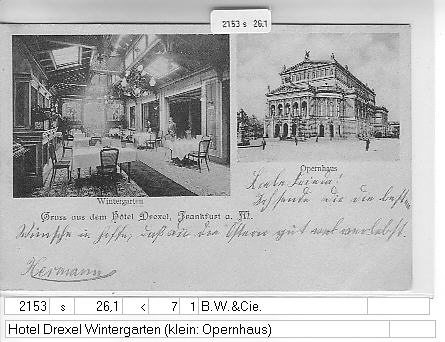 2153 s 26.1
Wintergarten
Opernhaus
Gruss aus dem Hôtel Drexel, Frankfurt a. M.
Ich sende dir die besten
Wünsche u. hoffe, daß du die Ostern gut verlebst.
Hermann
2153 s 26,1 < 7 1 B.W.&Cie.
Hotel Drexel Wintergarten (klein: Opernhaus)